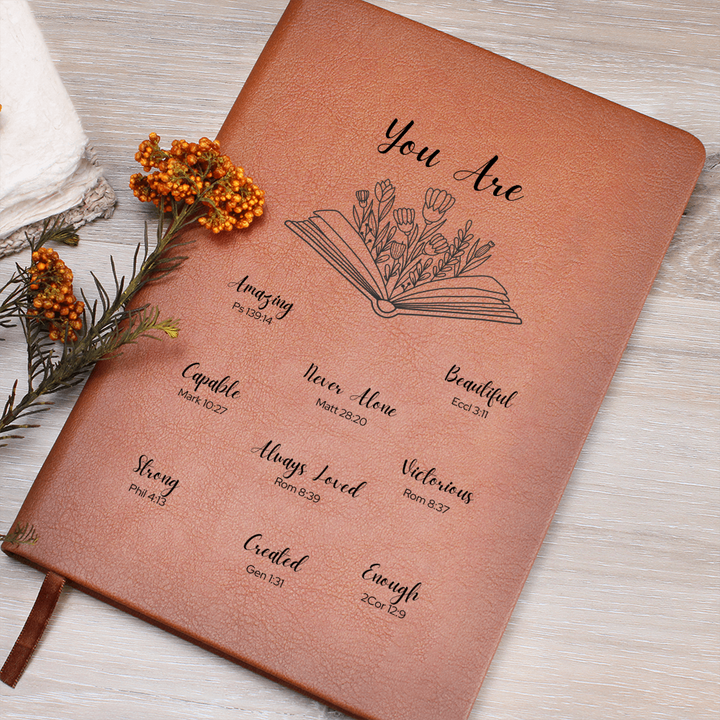 You Are
Amazing
Ps 139:14
Capable
Mark 10:27
Never Alone
Matt 28:20
Beautiful
Eccl 3:11
Strong
Phil 4:13
Always Loved
Rom 8:39
Victorious
Rom 8:37
Created
Gen 1:31
Enough
2Cor 12:9